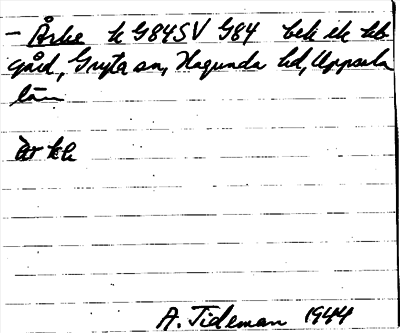 - Årke k G84SV G84 bek ek kb
gård, Gryta sn, Hagunda hd, Uppsala
län
år kk
A. Tideman 1944